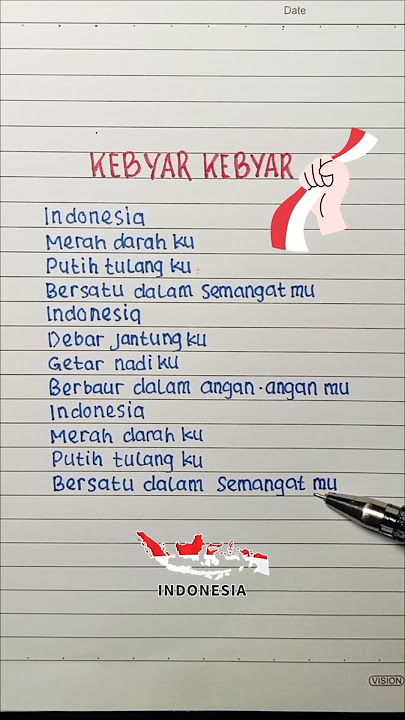 Date
KEBYAR KEBYAR
Indonesia
Merah darah ku
Putih tulang ku
Bersatu dalam semangat mu
Indonesia
Debar jantung ku
Getar nadi ku
Berbaur dalam angan-angan mu
Indonesia
Merah darah ku
Putih tulang ku
Bersatu dalam semangat mu
INDONESIA
VISION